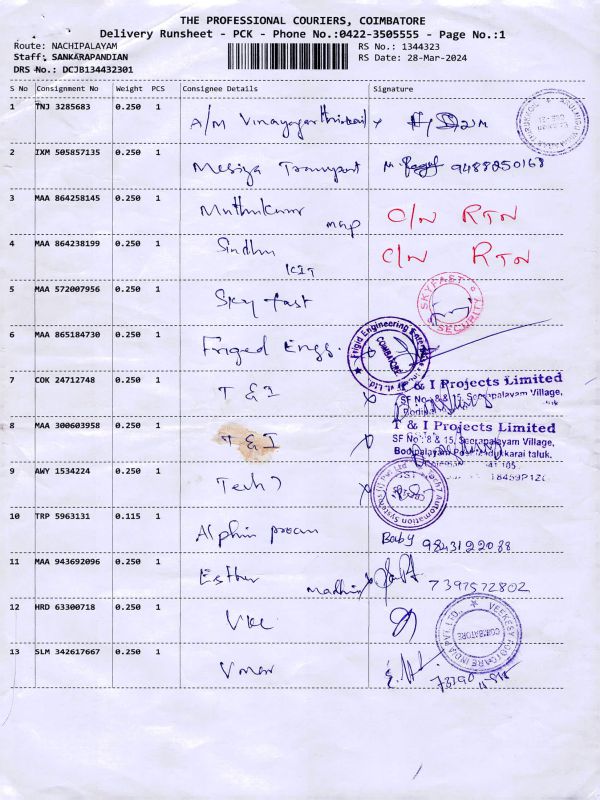 THE PROFESSIONAL COURIERS, COIMBATORE
Delivery Runsheet - PCK - Phone No.:0422-3505555 - Page No.:1
Route: NACHIPALAYAM RS No.: 1344323
Staff: SANKARAPANDIAN RS Date: 28-Mar-2024
DRS No.: DCJB134432301
S No Consignment No Weight PCS Consignee Details Signature
1 TNJ 3285683 0.250 1 A/M
2 IXM 505857135 0.250 1 Transport 9488250168
3 MAA 864258145 0.250 1 Muthukumar O/N RTN
map
4 MAA 864238199 0.250 1 Sindhu O/N RTN
KIT
5 MAA 572007956 0.250 1 Sky fast SKYFAST SECURITY
6 MAA 865184730 0.250 1 Friged Engg. Frigid Engineering COIMBATORE
7 COK 24712748 0.250 1 T & I T & I Projects Limited
SF No : 8 & 15, Seerapalayam Village,
8 MAA 300603958 0.250 1 T & I T & I Projects Limited
SF No : 8 & 15, Seerapalayam Village,
Bodipalayam Post, Madukkarai taluk.
9 AWY 1534224 0.250 1 Tech 7 Tech7 Automation Systems (I) Pvt Ltd
10 TRP 5963131 0.115 1 Alphin Baby 9843122088
11 MAA 943692096 0.250 1 Esther 7397572802
12 HRD 63300718 0.250 1 VKC VEEKESY FOOTCARE INDIA PVT LTD. COIMBATORE
13 SLM 342617667 0.250 1